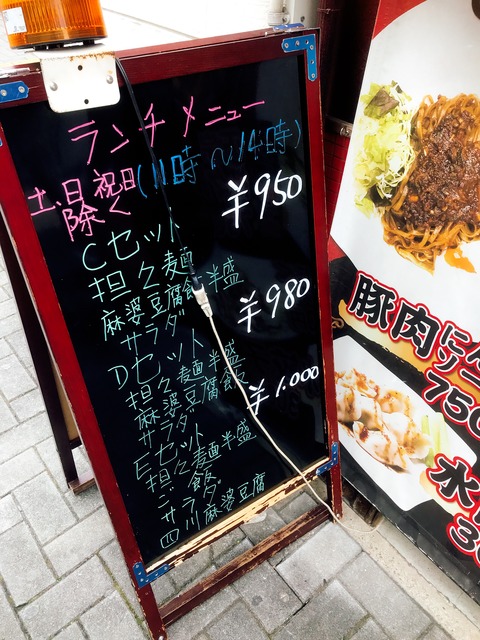 ランチメニュー
(11時~14時)
土、日 祝日
除く
Cセット ¥950
担々麺
麻婆豆腐飯半盛
サラダ
Dセット ¥980
担々麺半盛
麻婆豆腐飯
サラダ
Eセット ¥1.000
担々麺半盛
ご飯
サラダ
四川麻婆豆腐
豚肉に
ソー
750
水
30